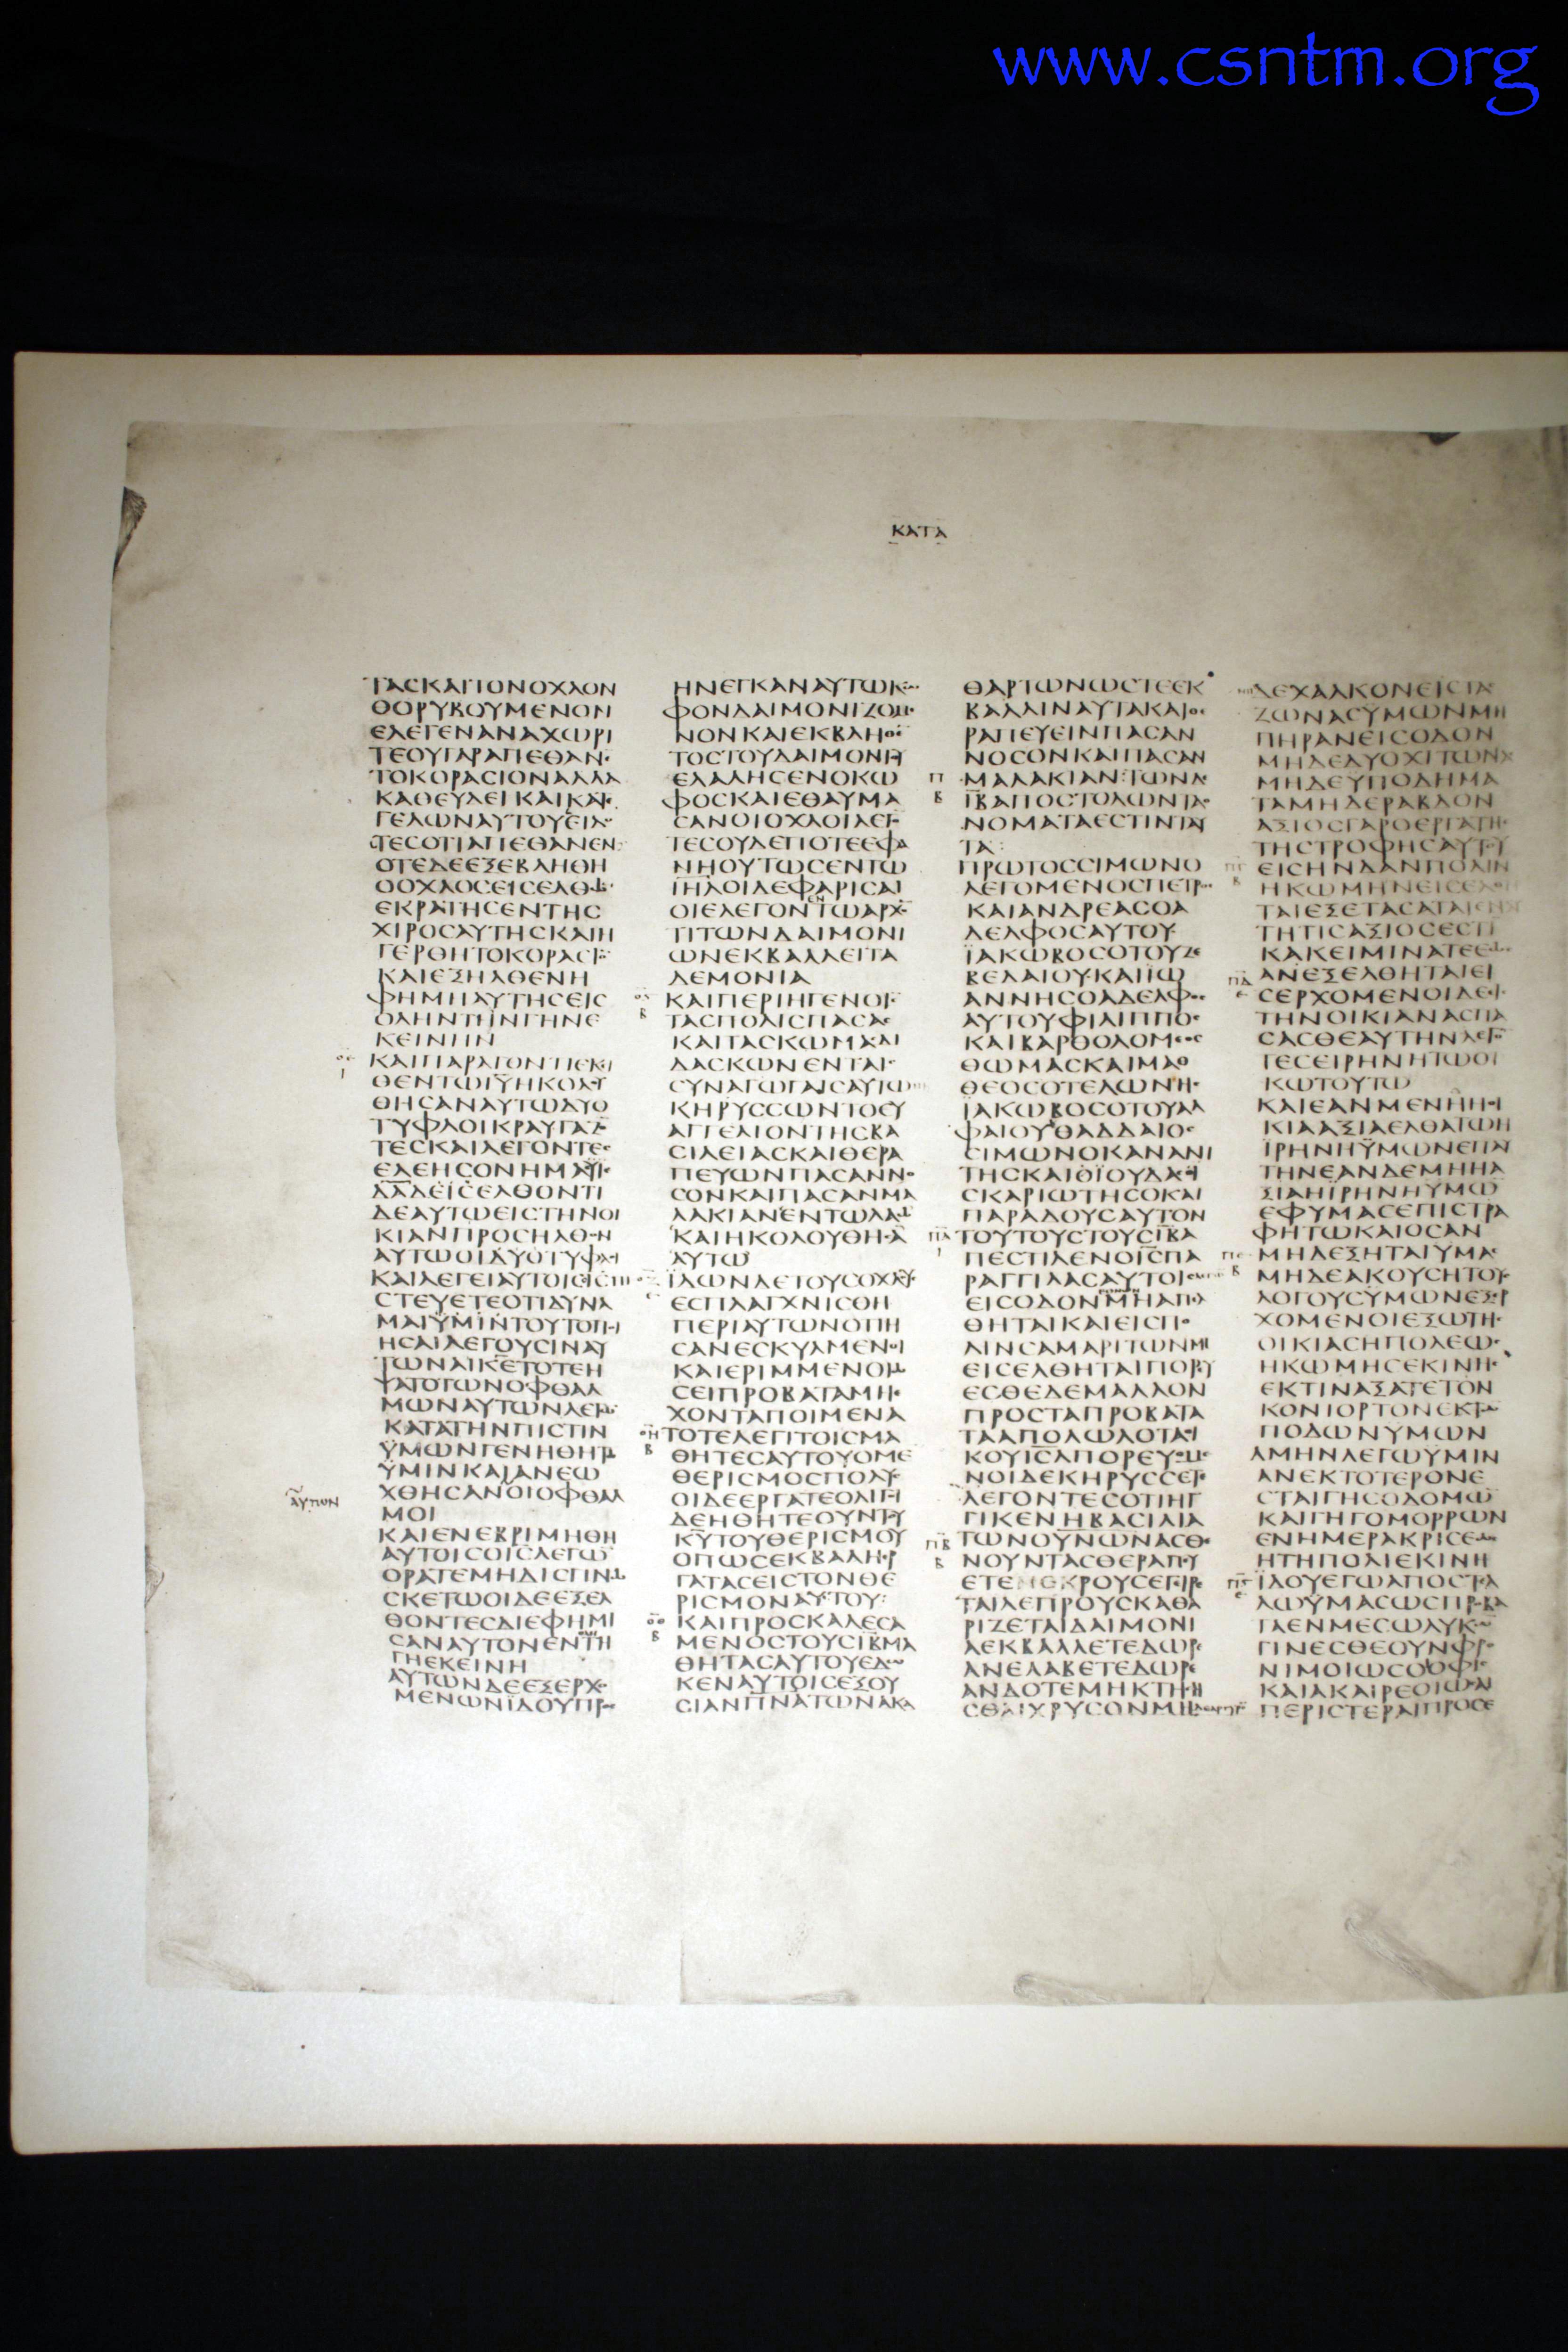 www.csntm.org
ΚΑΤΑ
ΤΑϹΚΑΙΤΟΝΟΧΛΟΝ
ΘΟΡΥΒΟΥΜΕΝΟΝ
ΕΛΕΓΕΝΑΝΑΧΩΡΙ
ΤΕΟΥΓΑΡΑΠΕΘΑΝΕ
ΤΟΚΟΡΑϹΙΟΝΑΛΛΑ
ΚΑΘΕΥΔΕΙΚΑΙΚΑΤΕ
ΓΕΛΩΝΑΥΤΟΥΕΙΔΟ
ΤΕϹΟΤΙΑΠΕΘΑΝΕΝ:
ΟΤΕΔΕΕΞΕΒΛΗΘΗ
ΟΟΧΛΟϹΕΙϹΕΛΘΩ
ΕΚΡΑΤΗϹΕΝΤΗϹ
ΧΙΡΟϹΑΥΤΗϹΚΑΙΗ
ΓΕΡΘΗΤΟΚΟΡΑϹΙΟ
ΚΑΙΕΞΗΛΘΕΝΗ
ΦΗΜΗΑΥΤΗϹΕΙϹ
ΟΛΗΝΤΗΝΓΗΝΕ
ΚΕΙΝΗΝ
ΚΑΙΠΑΡΑΓΟΝΤΙΕΚΙ
ΘΕΝΤΩΙΥΗΚΟΛΟΥ
ΘΗϹΑΝΑΥΤΩΔΥΟ
ΤΥΦΛΟΙΚΡΑΥΓΑΖ
ΤΕϹΚΑΙΛΕΓΟΝΤΕϹ
ΕΛΕΗϹΟΝΗΜΑϹΥΙΕ
ΔΑΔΕΙϹΕΛΘΟΝΤΙ
ΔΕΑΥΤΩΕΙϹΤΗΝΟΙ
ΚΙΑΝΠΡΟϹΗΛΘΟΝ
ΑΥΤΩΟΙΔΥΟΤΥΦΛΟΙ
ΚΑΙΛΕΓΕΙΑΥΤΟΙϹΟΙϹΠΙ
ϹΤΕΥΕΤΕΟΤΙΔΥΝΑ
ΜΑΙΫΜΙΝΤΟΥΤΟΠΟΙ
ΗϹΑΙΛΕΓΟΥϹΙΝΑΥ
ΤΩΝΑΙΚΕΤΟΤΕΗ
ΨΑΤΟΤΩΝΟΦΘΑΛ
ΜΩΝΑΥΤΩΝΛΕΓΩ
ΚΑΤΑΤΗΝΠΙϹΤΙΝ
ΫΜΩΝΓΕΝΗΘΗΤΩ
ΫΜΙΝΚΑΙΑΝΕΩ
ΧΘΗϹΑΝΟΙΟΦΘΑΛ
ΜΟΙ
ΑΥΤΩΝ
ΚΑΙΕΝΕΒΡΙΜΗΘΗ
ΑΥΤΟΙϹΟΙϹΛΕΓΩ
ΟΡΑΤΕΜΗΔΙϹΓΙΝΩ
ϹΚΕΤΩΟΙΔΕΕΞΕΛ
ΘΟΝΤΕϹΔΙΕΦΗΜΙ
ϹΑΝΑΥΤΟΝΕΝΤΗ
ΓΗΕΚΕΙΝΗ
ΑΥΤΩΝΔΕΕΞΕΡΧΟ
ΜΕΝΩΝΪΔΟΥΠΡΟϹ
ΗΝΕΓΚΑΝΑΥΤΩΚΩ
ΦΟΝΔΑΙΜΟΝΙΖΟΜΕ
ΝΟΝΚΑΙΕΚΒΛΗΘΕ
ΤΟϹΤΟΥΔΑΙΜΟΝΙΟΥ
ΕΛΑΛΗϹΕΝΟΚΩ
ΦΟϹΚΑΙΕΘΑΥΜΑ
ϹΑΝΟΙΟΧΛΟΙΛΕΓΟ
ΤΕϹΟΥΔΕΠΟΤΕΕΦΑ
ΝΗΟΥΤΩϹΕΝΤΩ
ΙΗΛΟΙΔΕΦΑΡΙϹΑΙ
ΟΙΕΛΕΓΟΝΕΝΤΩΑΡΧΟ
ΤΙΤΩΝΔΑΙΜΟΝΙ
ΩΝΕΚΒΑΛΛΕΙΤΑ
ΔΕΜΟΝΙΑ
ΚΑΙΠΕΡΙΗΓΕΝΟΙϹ
ΤΑϹΠΟΛΙϹΠΑϹΑϹ
ΚΑΙΤΑϹΚΩΜΑϹΔΙ
ΔΑϹΚΩΝΕΝΤΑΙϹ
ϹΥΝΑΓΩΓΑΙϹΑΥΤΩ
ΚΗΡΥϹϹΩΝΤΟΕΥ
ΑΓΓΕΛΙΟΝΤΗϹΒΑ
ϹΙΛΕΙΑϹΚΑΙΘΕΡΑ
ΠΕΥΩΝΠΑϹΑΝΝΟ
ϹΟΝΚΑΙΠΑϹΑΝΜΑ
ΛΑΚΙΑΝΕΝΤΩΛΑΩ
ΚΑΙΗΚΟΛΟΥΘΗϹΑ
ΑΥΤΩ
ΪΔΩΝΔΕΤΟΥϹΟΧΛΟΥϹ
ΕϹΠΛΑΓΧΝΙϹΘΗ
ΠΕΡΙΑΥΤΩΝΟΤΙΗ
ϹΑΝΕϹΚΥΛΜΕΝΟΙ
ΚΑΙΕΡΙΜΜΕΝΟΙΩ
ϹΕΙΠΡΟΒΑΤΑΜΗΕ
ΧΟΝΤΑΠΟΙΜΕΝΑ
ΤΟΤΕΛΕΓΙΤΟΙϹΜΑ
ΘΗΤΕϹΑΥΤΟΥΟΜΕ
ΘΕΡΙϹΜΟϹΠΟΛΥϹ
ΟΙΔΕΕΡΓΑΤΕΟΛΙΓΟΙ
ΔΕΗΘΗΤΕΟΥΝΤΟΥ
ΚΥΤΟΥΘΕΡΙϹΜΟΥ
ΟΠΩϹΕΚΒΑΛΗΕΡ
ΓΑΤΑϹΕΙϹΤΟΝΘΕ
ΡΙϹΜΟΝΑΥΤΟΥ:
ΚΑΙΠΡΟϹΚΑΛΕϹΑ
ΜΕΝΟϹΤΟΥϹΙΒΜΑ
ΘΗΤΑϹΑΥΤΟΥΕΔΩ
ΚΕΝΑΥΤΟΙϹΕΞΟΥ
ϹΙΑΝΠΝΑΤΩΝΑΚΑ
ΘΑΡΤΩΝΩϹΤΕΕΚ
ΒΑΛΛΙΝΑΥΤΑΚΑΙΘΕ
ΡΑΠΕΥΕΙΝΠΑϹΑΝ
ΝΟϹΟΝΚΑΙΠΑϹΑΝ
ΜΑΛΑΚΙΑΝ:ΤΩΝΔΕ
ΙΒΑΠΟϹΤΟΛΩΝΤΑΟ
ΝΟΜΑΤΑΕϹΤΙΝΤΑΥ
ΤΑ:
ΠΡΩΤΟϹϹΙΜΩΝΟ
ΛΕΓΟΜΕΝΟϹΠΕΤΡΟϹ
ΚΑΙΑΝΔΡΕΑϹΟΑ
ΔΕΛΦΟϹΑΥΤΟΥ
ΪΑΚΩΒΟϹΟΤΟΥΖΕ
ΒΕΔΑΙΟΥΚΑΙΪΩ
ΑΝΝΗϹΟΑΔΕΛΦΟϹ
ΑΥΤΟΥΦΙΛΙΠΠΟϹ
ΚΑΙΒΑΡΘΟΛΟΜΕΟϹ
ΘΩΜΑϹΚΑΙΜΑΘ
ΘΕΟϹΟΤΕΛΩΝΗϹ
ΪΑΚΩΒΟϹΟΤΟΥΑΛ
ΦΑΙΟΥΘΑΔΔΑΙΟϹ
ϹΙΜΩΝΟΚΑΝΑΝΙ
ΤΗϹΚΑΙΟΪΟΥΔΑϹΟΙ
ϹΚΑΡΙΩΤΗϹΟΚΑΙ
ΠΑΡΑΔΟΥϹΑΥΤΟΝ
ΤΟΥΤΟΥϹΤΟΥϹΙΒΑ
ΠΕϹΤΙΛΕΝΟΙϹΠΑ
ΡΑΓΓΙΛΑϹΑΥΤΟΙϹ
ΕΙϹΟΔΟΝΜΗΑΠΕΛ
ΘΗΤΑΙΚΑΙΕΙϹΠΟ
ΛΙΝϹΑΜΑΡΙΤΩΝΜΗ
ΕΙϹΕΛΘΗΤΑΙΠΟΡΕΥ
ΕϹΘΕΔΕΜΑΛΛΟΝ
ΠΡΟϹΤΑΠΡΟΒΑΤΑ
ΤΑΑΠΟΛΩΛΟΤΑΟΙ
ΚΟΥΙϹΑΠΟΡΕΥΟΜΕ
ΝΟΙΔΕΚΗΡΥϹϹΕΤΕ
ΛΕΓΟΝΤΕϹΟΤΙΗΓ
ΓΙΚΕΝΗΒΑϹΙΛΙΑ
ΤΩΝΟΥΝΩΝΑϹΘΕ
ΝΟΥΝΤΑϹΘΕΡΑΠΕΥ
ΕΤΕΝΕΚΡΟΥϹΕΓΙΡΕ
ΤΑΙΛΕΠΡΟΥϹΚΑΘΑ
ΡΙΖΕΤΑΙΔΑΙΜΟΝΙ
ΑΕΚΒΑΛΛΕΤΕΔΩΡΕ
ΑΝΕΛΑΒΕΤΕΔΩΡΕ
ΑΝΔΟΤΕΜΗΚΤΗϹΗ
ϹΘΑΙΧΡΥϹΟΝΜΗ
ΔΕΧΑΛΚΟΝΕΙϹΤΑϹ
ΖΩΝΑϹΥΜΩΝΜΗ
ΠΗΡΑΝΕΙϹΟΔΟΝ
ΜΗΔΕΔΥΟΧΙΤΩΝΑϹ
ΜΗΔΕΥΠΟΔΗΜΑ
ΤΑΜΗΔΕΡΑΒΔΟΝ
ΑΞΙΟϹΓΑΡΟΕΡΓΑΤΗϹ
ΤΗϹΤΡΟΦΗϹΑΥΤΟΥ
ΕΙϹΗΝΔΑΝΠΟΛΙΝ
ΗΚΩΜΗΝΕΙϹΕΛΘΗ
ΤΑΙΕΞΕΤΑϹΑΤΑΙΕΝΑΥ
ΤΗΤΙϹΑΞΙΟϹΕϹΤΙ
ΚΑΚΕΙΜΙΝΑΤΕΕΩϹ
ΑΝΕΞΕΛΘΗΤΑΙΕΙ
ϹΕΡΧΟΜΕΝΟΙΔΕΙϹ
ΤΗΝΟΙΚΙΑΝΑϹΠΑ
ϹΑϹΘΕΑΥΤΗΝΛΕΓΟ
ΤΕϹΕΙΡΗΝΗΤΩΟΙ
ΚΩΤΟΥΤΩ
ΚΑΙΕΑΝΜΕΝΗΗΟΙ
ΚΙΑΑΞΙΑΕΛΘΑΤΩΗ
ΙΡΗΝΗΫΜΩΝΕΠΑΥ
ΤΗΝΕΑΝΔΕΜΗΗΑ
ΞΙΑΗΪΡΗΝΗΥΜΩ
ΕΦΥΜΑϹΕΠΙϹΤΡΑ
ΦΗΤΩΚΑΙΟϹΑΝ
ΜΗΔΕΞΗΤΑΙΥΜΑϹ
ΜΗΔΕΑΚΟΥϹΗΤΟΥϹ
ΛΟΓΟΥϹΥΜΩΝΕΞΕΡ
ΧΟΜΕΝΟΙΕΞΩΤΗϹ
ΟΙΚΙΑϹΗΠΟΛΕΩϹ
ΗΚΩΜΗϹΕΚΙΝΗϹ
ΕΚΤΙΝΑΞΑΤΕΤΟΝ
ΚΟΝΙΟΡΤΟΝΕΚΤΩ
ΠΟΔΩΝΥΜΩΝ
ΑΜΗΝΛΕΓΩΥΜΙΝ
ΑΝΕΚΤΟΤΕΡΟΝΕ
ϹΤΑΙΓΗϹΟΔΟΜΩ
ΚΑΙΓΗΓΟΜΟΡΡΩΝ
ΕΝΗΜΕΡΑΚΡΙϹΕΩϹ
ΗΤΗΠΟΛΙΕΚΙΝΗ
ΪΔΟΥΕΓΩΑΠΟϹΤΕΛ
ΛΩΥΜΑϹΩϹΠΡΟΒΑ
ΤΑΕΝΜΕϹΩΛΥΚΩ
ΓΙΝΕϹΘΕΟΥΝΦΡΟ
ΝΙΜΟΙΩϹΟΟΦΙϹ
ΚΑΙΑΚΑΙΡΕΟΙΩϹΑΙ
ΠΕΡΙϹΤΕΡΑΙΠΡΟϹΕ